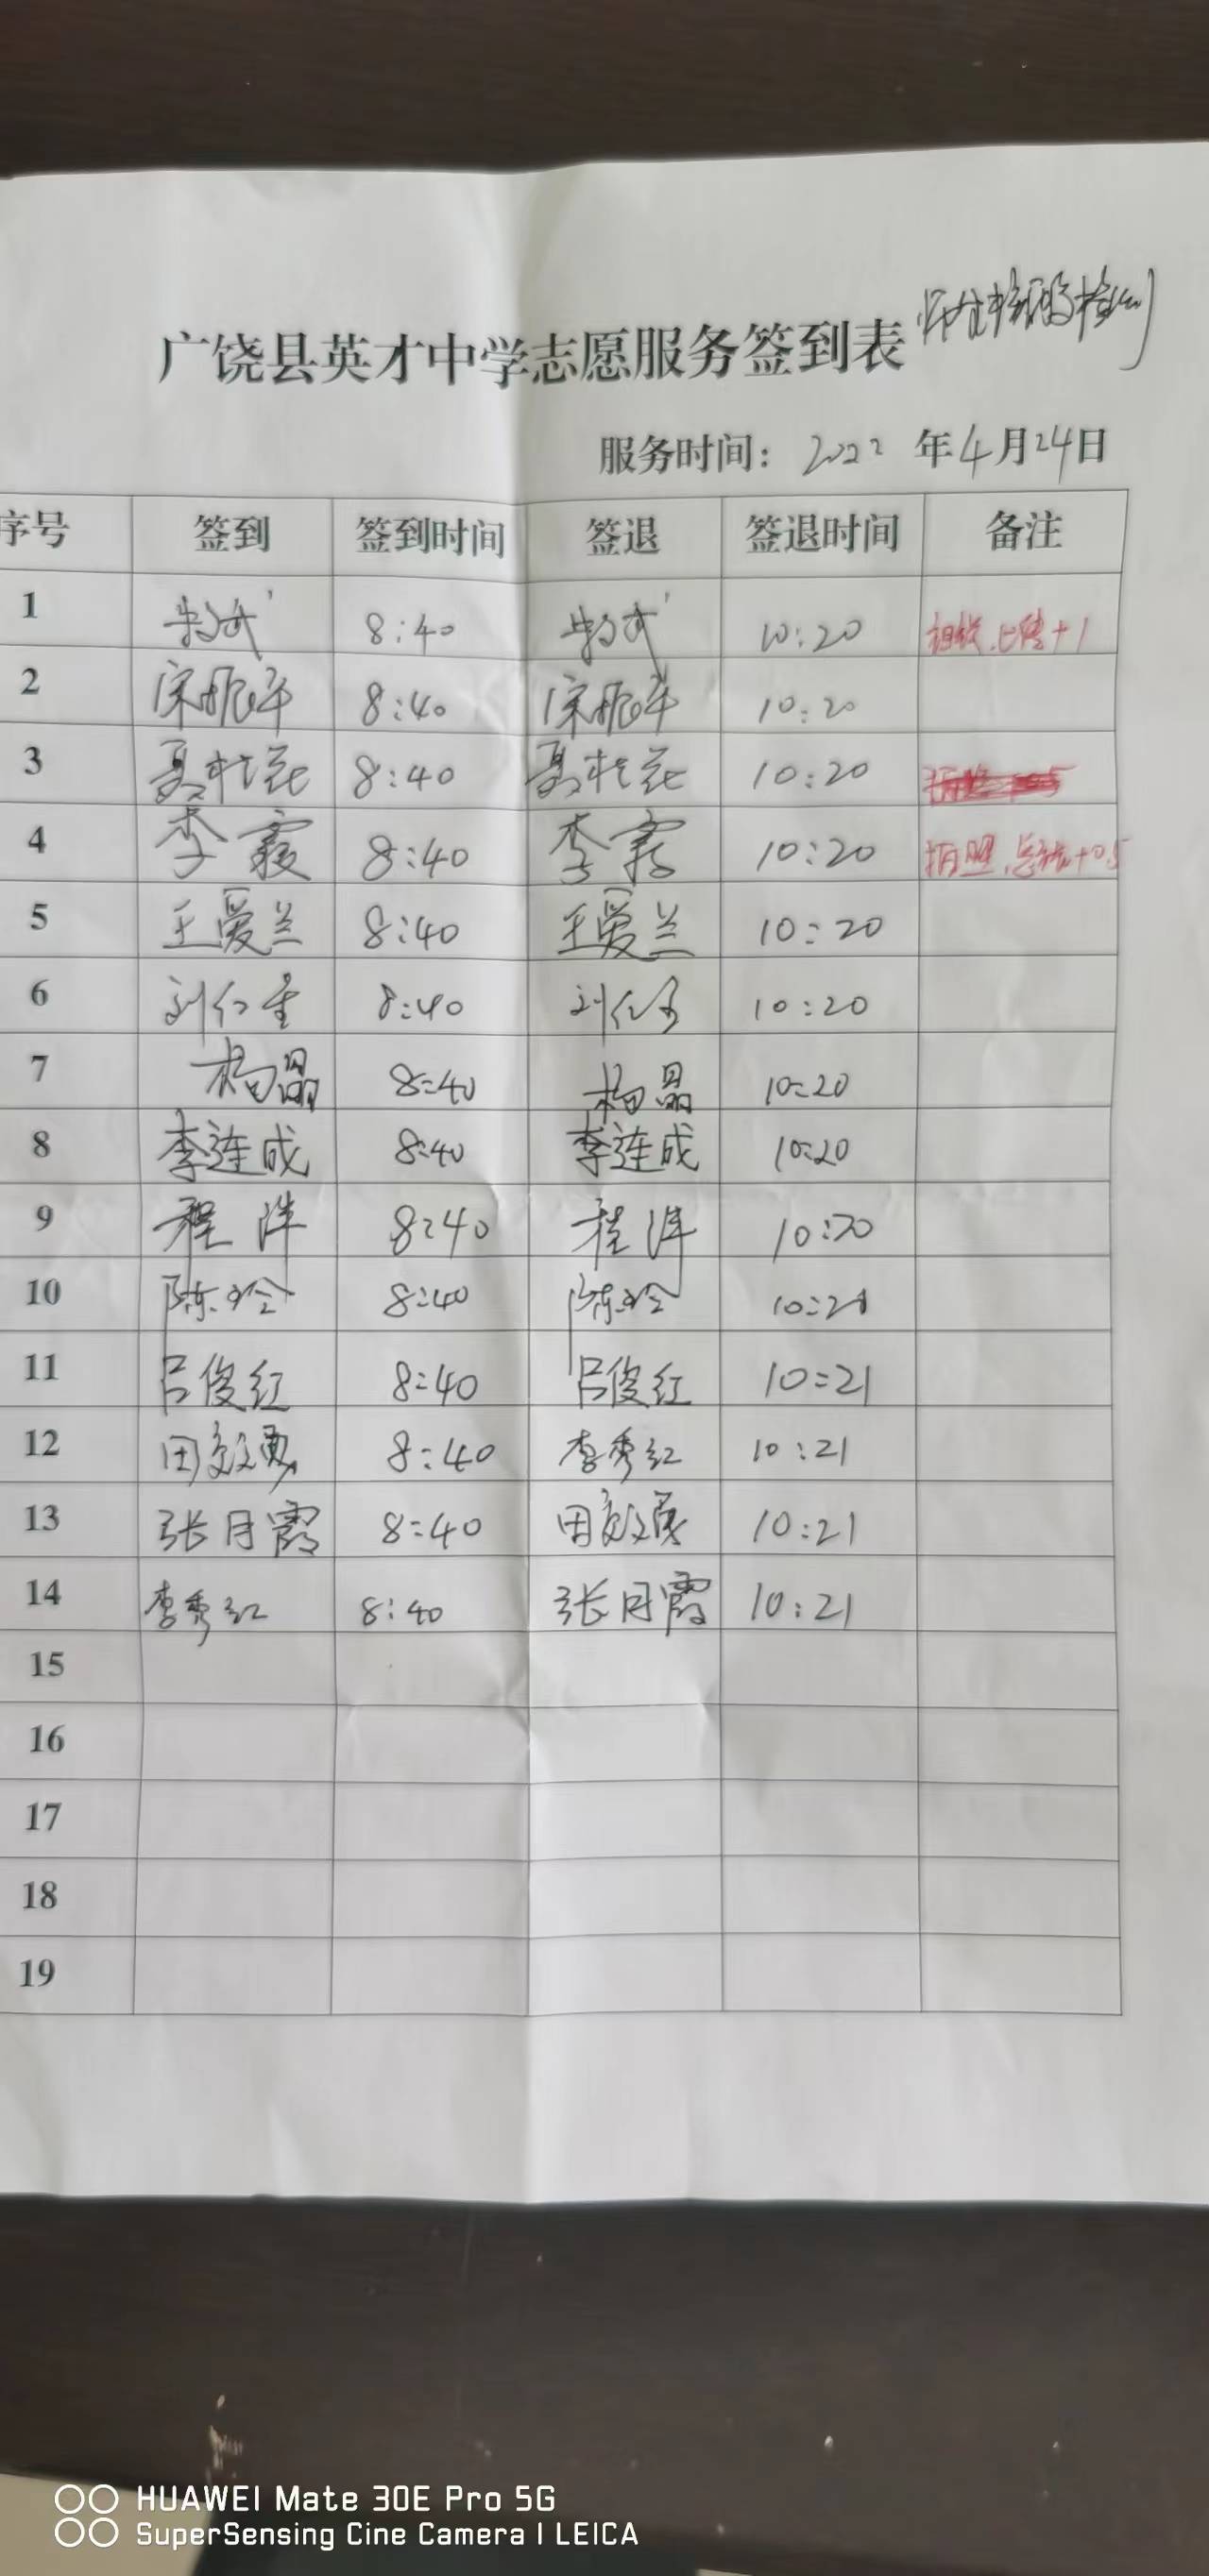 师生核酸检测
广饶县英才中学志愿服务签到表
服务时间: 2022 年4月24日
序号 签到 签到时间 签退 签退时间 备注
1 8:40 10:20 +1
2 宋振军 8:40 宋振军 10:20
3 聂桂花 8:40 聂桂花 10:20
4 李霞 8:40 李霞 10:20 +0.5
5 王爱兰 8:40 王爱兰 10:20
6 8:40 10:20
7 杨晶 8:40 杨晶 10:20
8 李连成 8:40 李连成 10:20
9 程洋 8:40 程洋 10:20
10 陈玲 8:40 陈玲 10:21
11 吕俊红 8:40 吕俊红 10:21
12 田效勇 8:40 李秀红 10:21
13 张月霞 8:40 田效勇 10:21
14 李秀红 8:40 张月霞 10:21
15
16
17
18
19
HUAWEI Mate 30E Pro 5G
SuperSensing Cine Camera | LEICA